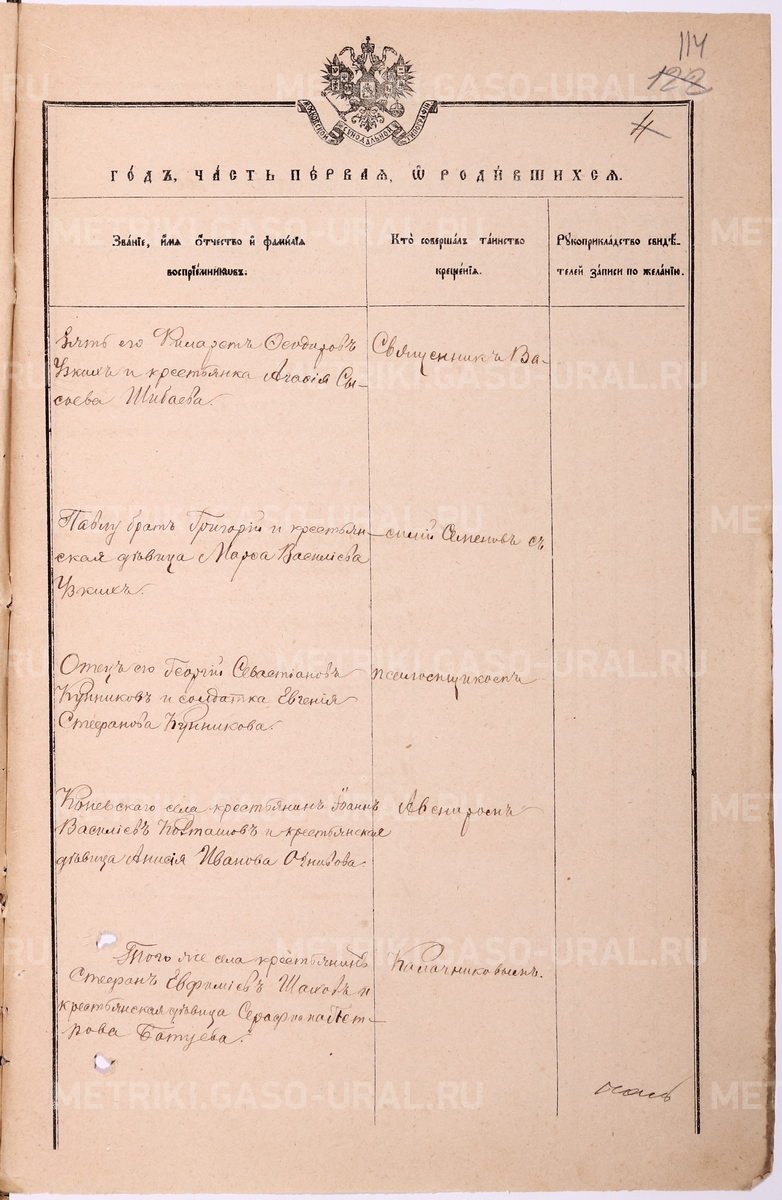 114
122
4
МОСКОВСКОЙ СѴНОДАЛЬНОЙ ТИПОГРАФІИ
ГО́ДЪ, ЧА́СТЬ ПЕ́РВАЯ, Ѡ҆ РОДИ́ВШИХСЯ.
Зва́нїе, и҆́мя ѻ҆́тчество и҆ фами́лїя
воспрїе́мниковъ.
Кто̀ соверша́лъ та́инство
креще́нїя.
Рꙋкоприкла́дство свидѣ́-
телей за́писи по жела́нїю.
Зять его Филаретъ Ѳеодоровъ
Узкихъ и крестьянка Агафія Сы-
соева Шибаева.
Священникъ Ва-
Павлу братъ Григорій и крестьян-
ская дѣвица Марѳа Василіева
Узкихъ.
силій Семеновъ съ
Отецъ его Георгій Севастіановъ
Кунниковъ и солдатка Евгенія
Стефанова Кунникова.
псаломщикомъ
Коневскаго села крестьянинъ Іоаннъ
Василіевъ Колташовъ и крестьянская
дѣвица Анисія Иванова
Авениромъ
Того же села крестьянинъ
Стефанъ Евфиміевъ и
крестьянская дѣвица Серафима Пет-
рова Батуева.
Калачниковымъ.
METRIKI.GASO-URAL.RU